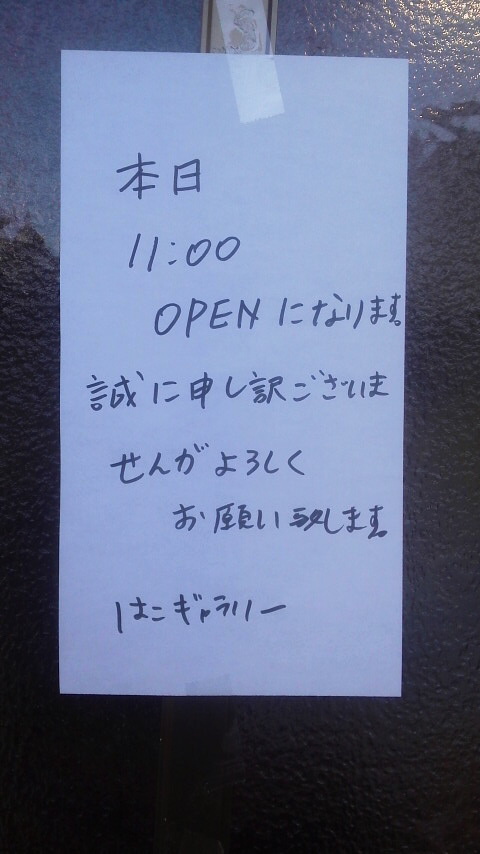 本日
11:00
OPENになります。
誠に申し訳ございま
せんがよろしく
お願い致します。
はこギャラリー